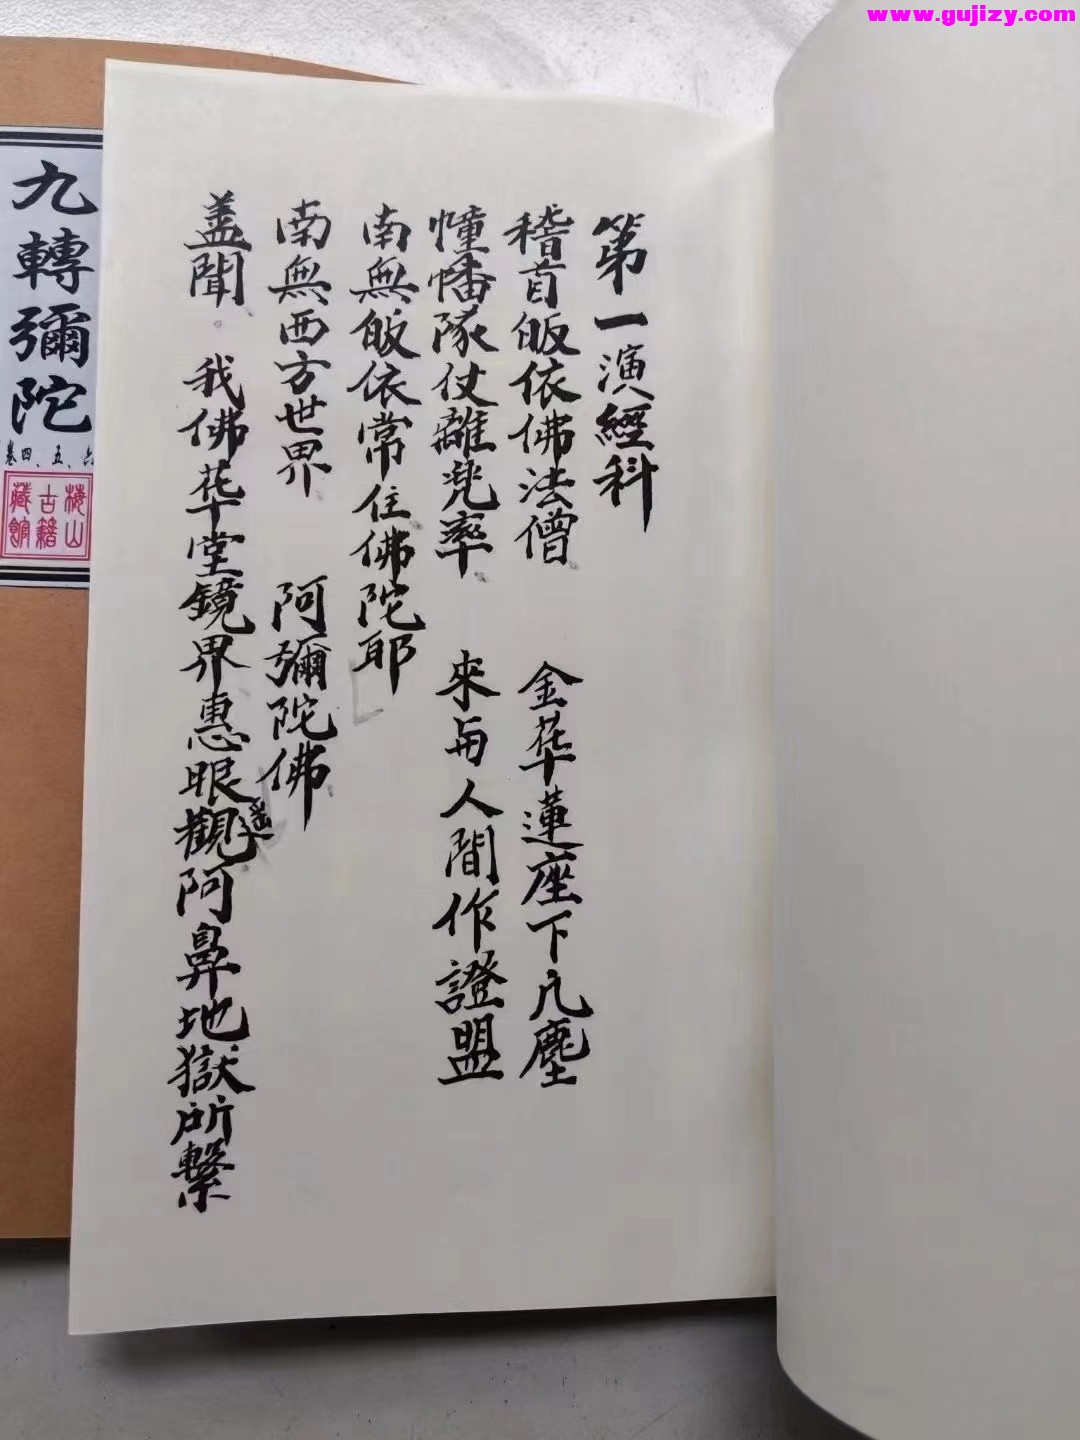 www.gujizy.com
第一演經科
稽首皈依佛法僧 金花蓮座下凡塵
幢幡隊仗離兠率 來与人間作證盟
南無皈依常住佛陀耶
南無西方世界 阿彌陀佛
盖聞 我佛花堂鏡界惠眼遥觀阿鼻地獄所繫
九轉彌陀
卷四、五、六
梅山
古籍
藏館